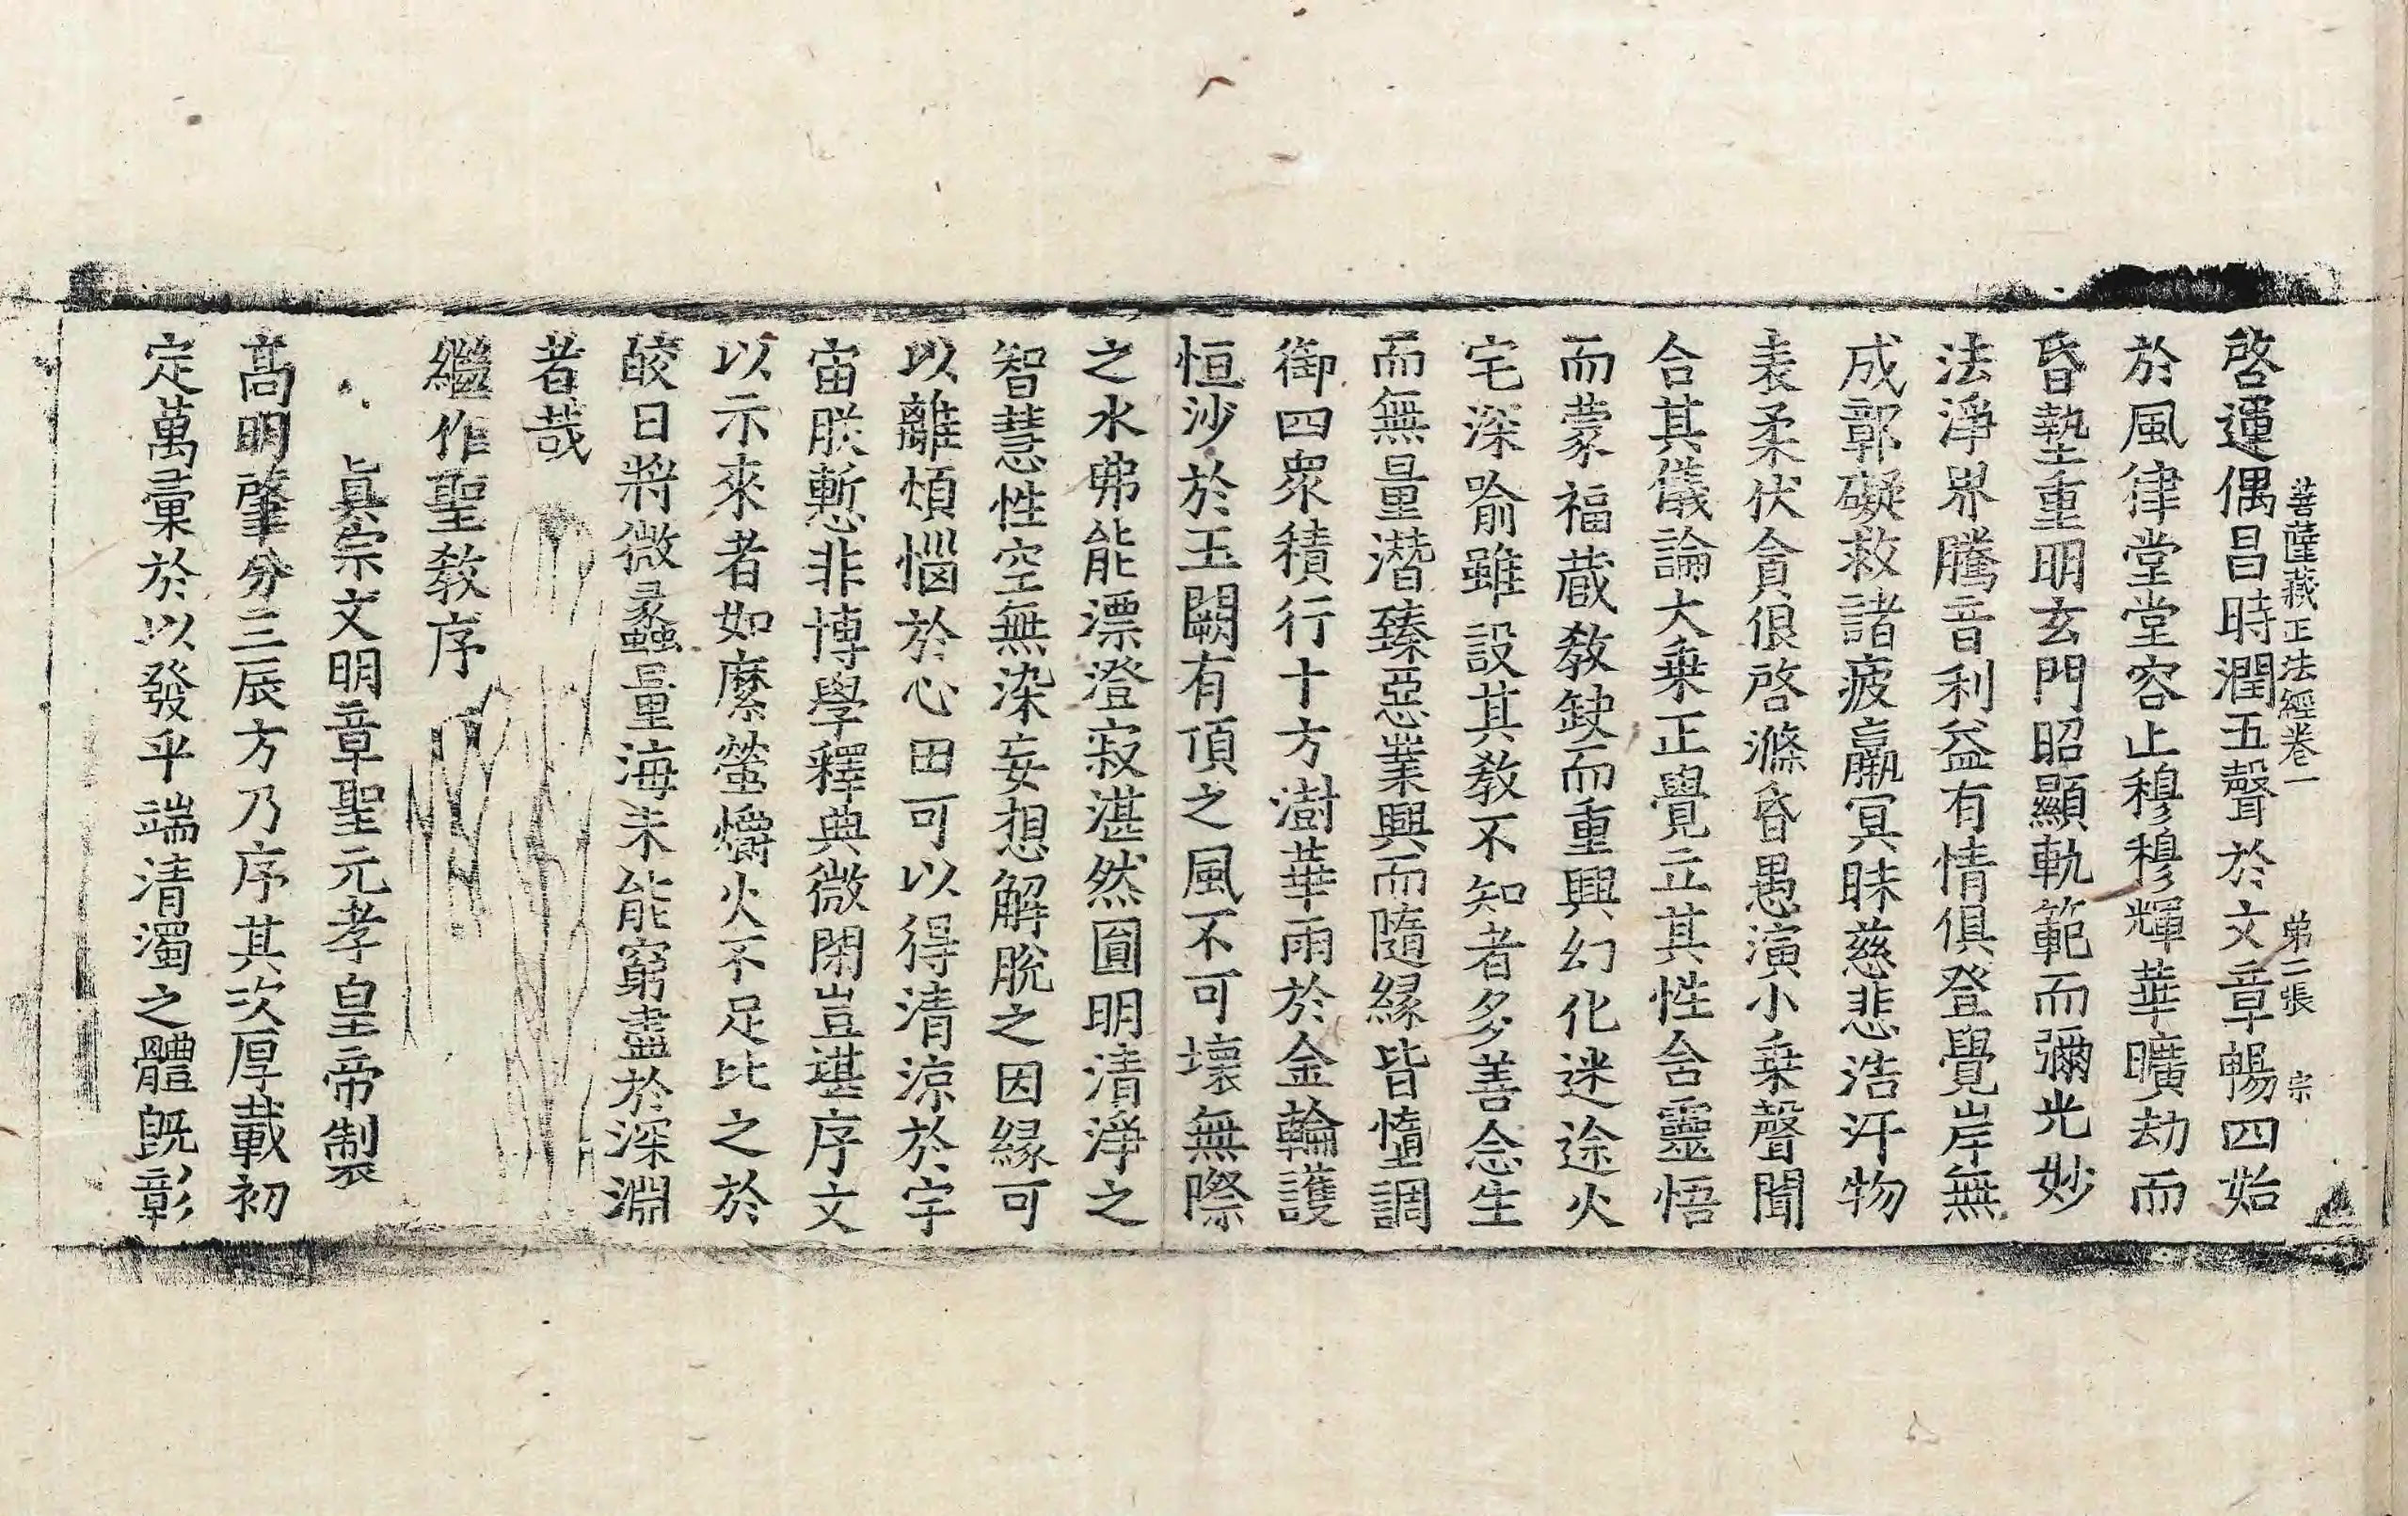 菩薩藏正法經卷一　第二張　宗
啓運偶昌時潤五聲於文章暢四始
於風律堂堂容止穆穆輝華曠劫而
昏墊重明玄門昭顯軌範而彌光妙
法淨界騰音利益有情俱登覺岸無
成郭礙救諸疲羸冥昧慈悲浩汗物
表柔伏貪很啓滌昏愚演小乗聲聞
合其儀論大乗正覺立其性含靈悟
而蒙福蔵教缺而重興幻化迷途火
宅深喻雖設其教不知者多善念生
而無量潛臻惡業興而隨縁皆墮調
御四衆積行十方澍華雨於金輪護
恒沙於玉闕有頂之風不可壞無際
之水弗能漂澄寂湛然圓明清淨之
智慧性空無染妄想解脫之因縁可
以離煩惱於心田可以得清涼於宇
宙朕慙非博學釋典微閑豈堪序文
以示來者如縻螢爝火不足比之於
皎日將微蠡量海未能窮盡於深淵
者哉
繼作聖教序
眞宗文明章聖元孝皇帝製
髙明肇分三辰方乃序其次厚載初
定萬彙於以發乎端清濁之體既彰